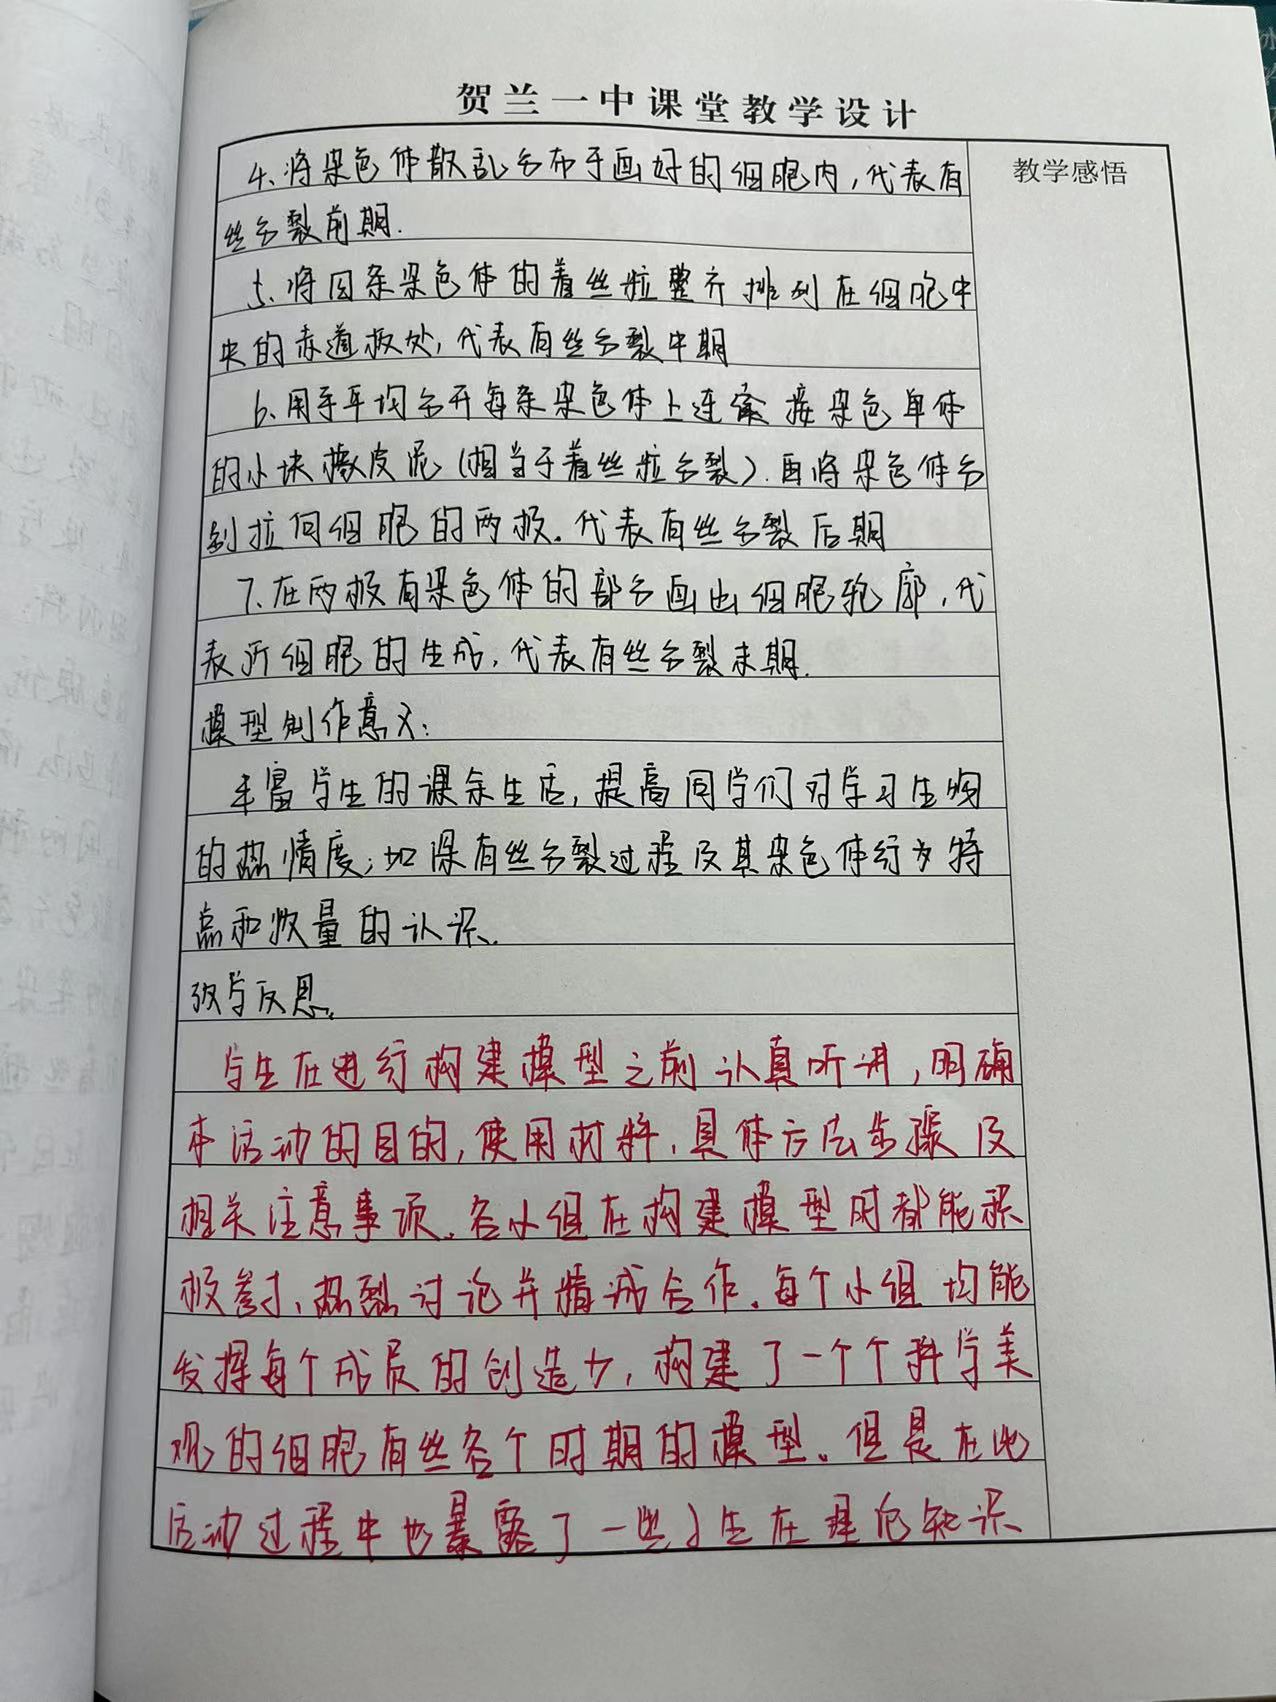 贺兰一中课堂教学设计
教学感悟
4、将染色体散乱分布于画好的细胞内，代表有
丝分裂前期.
5、将四条染色体的着丝粒整齐排列在细胞中
央的赤道板处，代表有丝分裂中期
6、用手平均分开每条染色体上连接染色单体
的小块橡皮泥（相当于着丝粒分裂）.再将染色体分
别拉向细胞的两极.代表有丝分裂后期
7、在两极有染色体的部分画出细胞轮廓，代
表新细胞的生成，代表有丝分裂末期.
模型制作意义：
丰富学生的课余生活，提高同学们对学习生物
的热情度；加深有丝分裂过程及其染色体行为特
点和数量的认识.
教学反思.
学生在进行构建模型之前认真听讲，明确
本活动的目的，使用材料，具体方法步骤及
相关注意事项.各小组在构建模型时都能积
极参与、热烈讨论并精诚合作.每个小组均能
发挥每个成员的创造力，构建了一个个科学美
观的细胞有丝各个时期的模型.但是在此
活动过程中也暴露了一些学生在理论知识